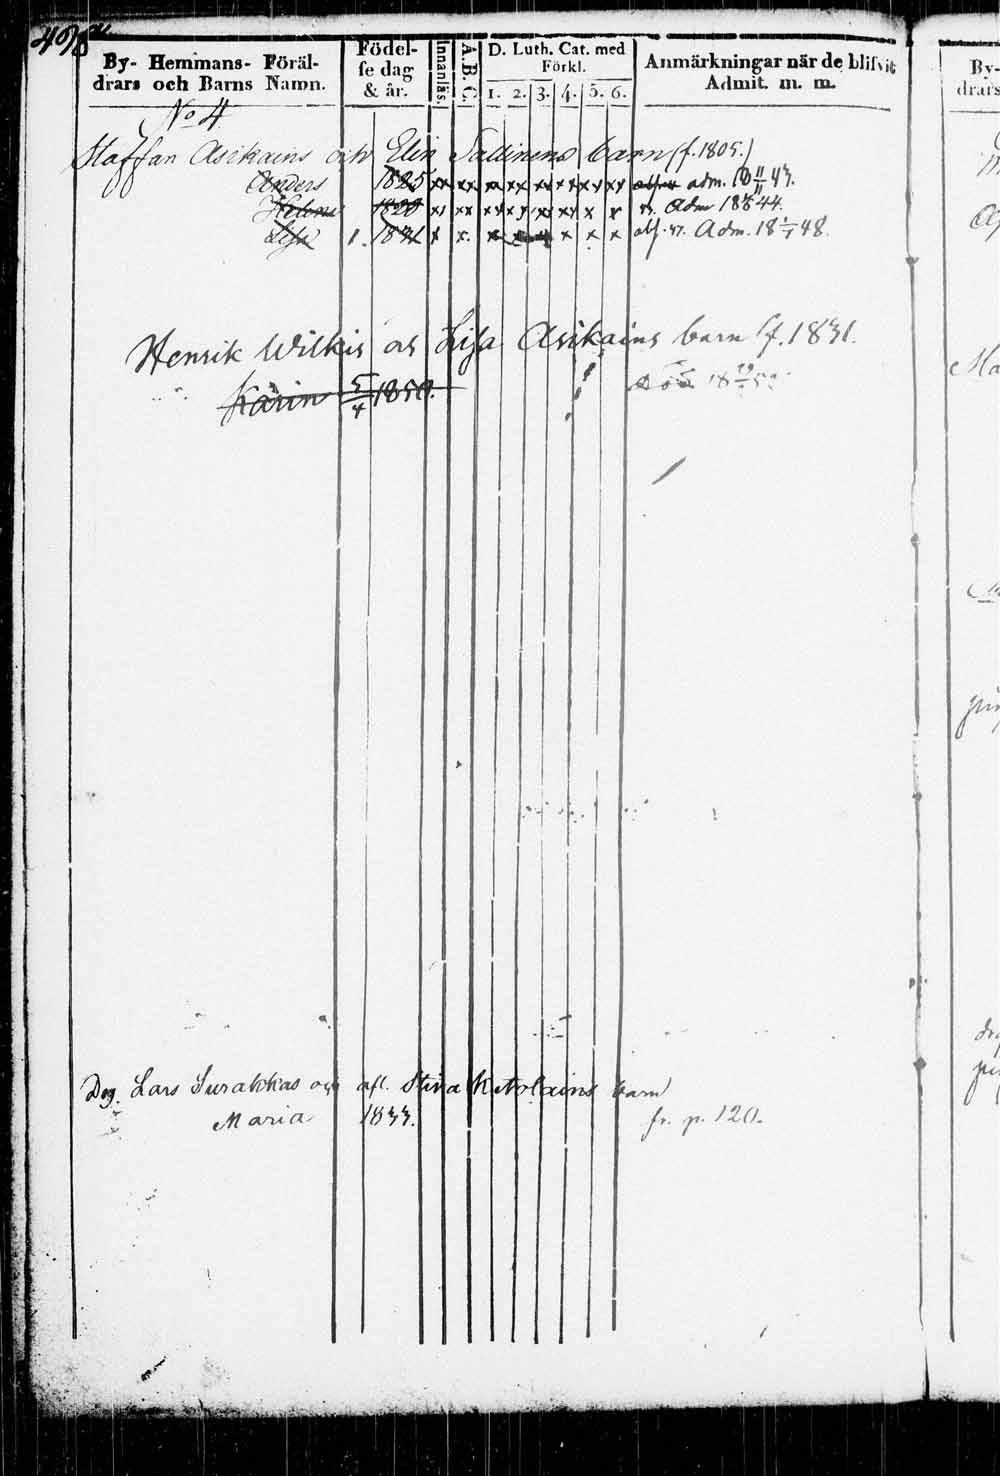 By- Hemmans- Föräl-
drars och Barns Namn.
Födel-
se dag
& år.
Innanläs.
A.B.C.
D. Luth. Cat. med
Förkl.
1. 2. 3. 4. 5. 6.
Anmärkningar när de blifvit
Admit. m. m.
No 4
Staffan Asikains och Elin Sallinens barn (f. 1805.)
Anders 1825 xx xx xx xx xx xx xx xx adm. 18 11/11 43.
Helena 1828 xx xx xx xx xx xx x x Adm 18 44.
Lisa 1831 x x x x x x x Adm. 18 48.
Henrik Wilkis o. Lisa Asikains barn f. 1831.
Karin 5/4 1850. Död 18
Dog. Lars Surakkas och afl. Stina Ketolains barn
Maria 1833. fr. p. 120.
By-
drars